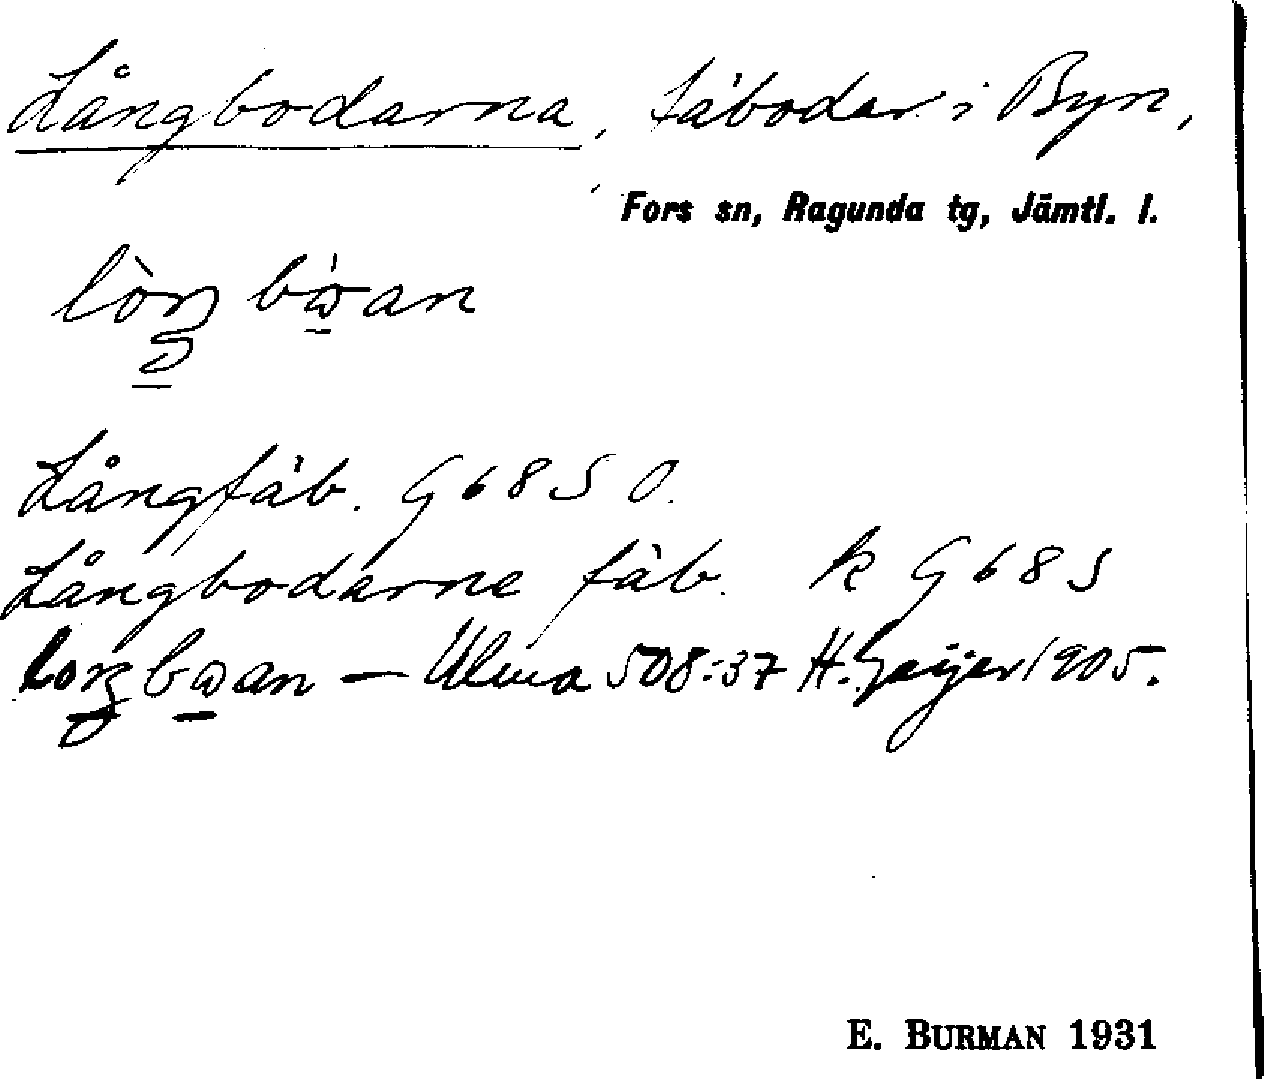 Långbodarna, fäbodar i Byn,
Fors sn, Ragunda tg, Jämtl. l.
Långfäb. G 68 S O.
Långbodarne fäb. k G 68 S
— Ulma 508:37 H. Geijer 1905.
E. BURMAN 1931